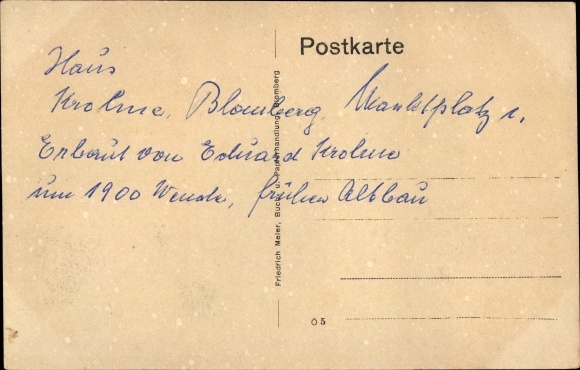 Postkarte
Haus
Krolme, Blomberg, Marktplatz 1,
Erbaut von Eduard Krolme
um 1900 Wende, früher Altbau
Friedrich Meier, Buch- u. Papierhandlung, Blomberg
Ö 5